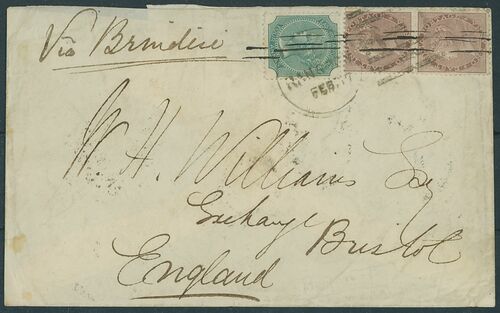 Via Brindisi
FEB. 17
W. H. Williams Esq
Exchange
Bristol
England